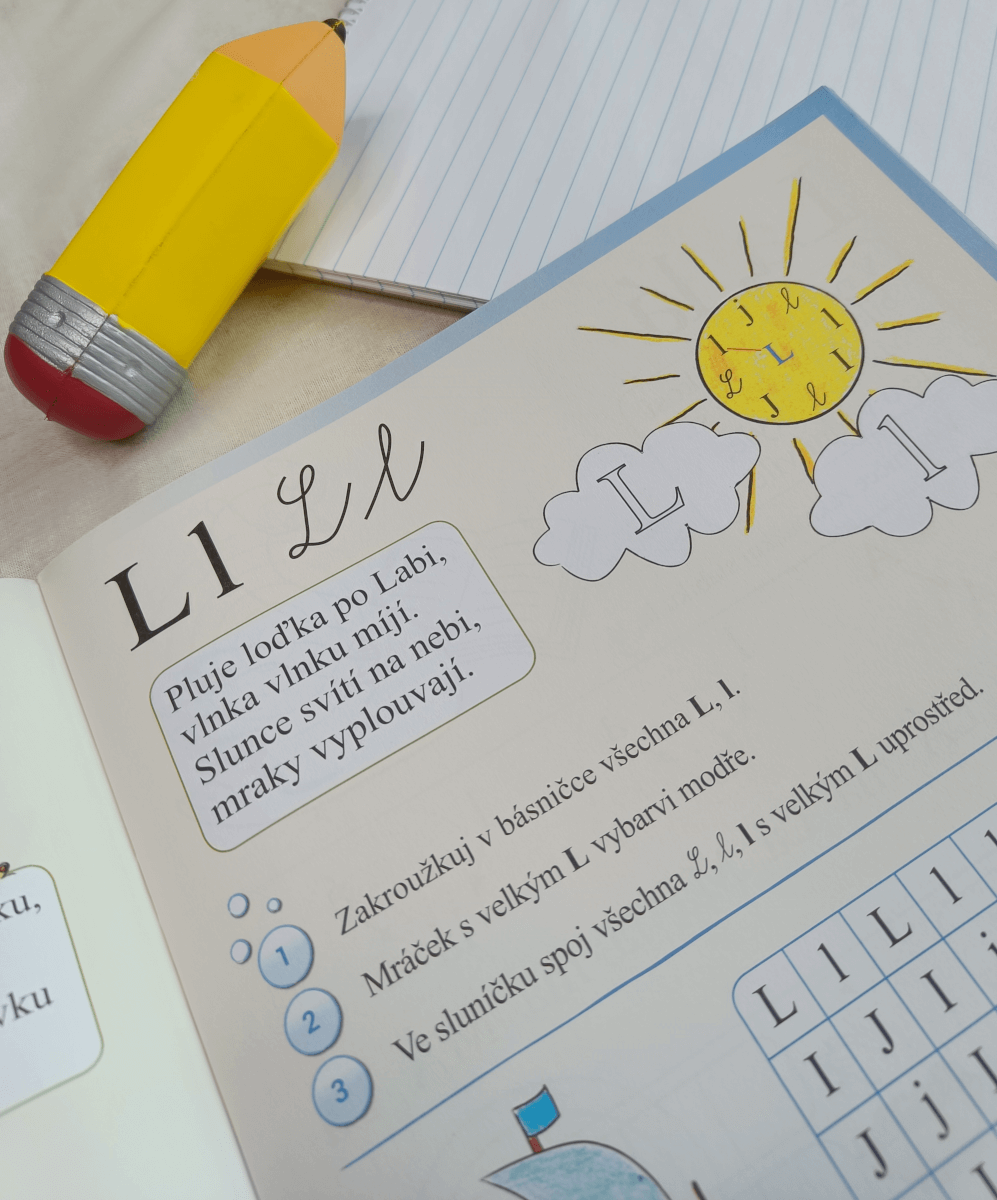 j ℓ
l l
L I
ℒ J ℓ
L l
L l ℒ ℓ
Pluje loďka po Labi,
vlnka vlnku míjí.
Slunce svítí na nebi,
mraky vyplouvají.
1 Zakroužkuj v básničce všechna L, l.
2 Mráček s velkým L vybarvi modře.
3 Ve sluníčku spoj všechna ℒ, ℓ, l s velkým L uprostřed.
L l L l
I J I j
J j
ku,
vku